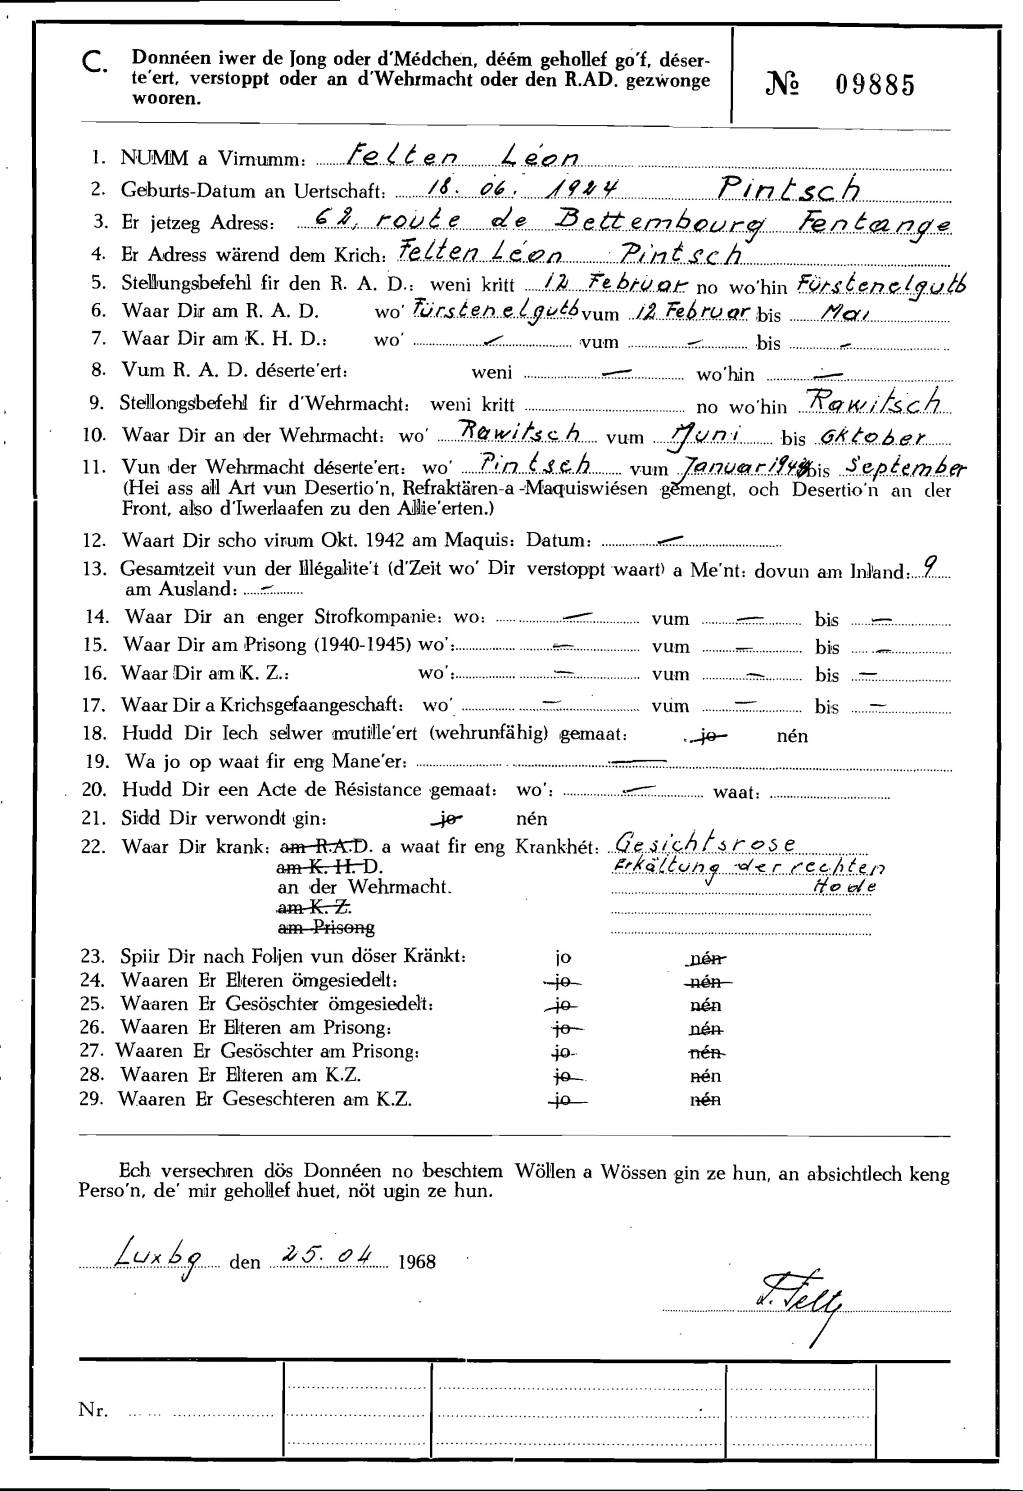 C. Donnéen iwer de Jong oder d'Médchen, déém gehollef go'f, déser-
te'ert, verstoppt oder an d'Wehrmacht oder den R.AD. gezwonge
wooren.
№ 09885
1. NUMM a Virnumm: Felten Léon
2. Geburts-Datum an Uertschaft: 18. 06. 1924 Pintsch
3. Er jetzeg Adress: 62, route de Bettembourg Fentange
4. Er Adress wärend dem Krich: Felten Léon Pintsch
5. Stellungsbefehl fir den R. A. D.: weni kritt 12 Februar no wo'hin Fürstenelguth
6. Waar Dir am R. A. D. wo' Fürstenelguth vum 12 Februar bis Mai
7. Waar Dir am K. H. D.: wo' — vum — bis —
8. Vum R. A. D. déserte'ert: weni — wo'hin —
9. Stellongsbefehl fir d'Wehrmacht: weni kritt no wo'hin Rawitsch
10. Waar Dir an der Wehrmacht: wo' Rawitsch vum Juni bis Oktober
11. Vun der Wehrmacht déserte'ert: wo' Pintsch vum Januar 1944 bis September
(Hei ass all Art vun Desertio'n, Refraktären-a -Maquiswiésen gemengt, och Desertio'n an der
Front, also d'Iwerlaafen zu den Allie'erten.)
12. Waart Dir scho virum Okt. 1942 am Maquis: Datum: —
13. Gesamtzeit vun der Illégalite't (d'Zeit wo' Dir verstoppt waart) a Me'nt: dovun am Inland: 9
am Ausland: —
14. Waar Dir an enger Strofkompanie: wo: — vum — bis —
15. Waar Dir am Prisong (1940-1945) wo': — vum — bis —
16. Waar Dir am K. Z.: wo': — vum — bis —
17. Waar Dir a Krichsgefaangeschaft: wo' — vum — bis —
18. Hudd Dir Iech selwer mutille'ert (wehrunfähig) gemaat: jo nén
19. Wa jo op waat fir eng Mane'er: —
20. Hudd Dir een Acte de Résistance gemaat: wo': — waat:
21. Sidd Dir verwondt gin: jo nén
22. Waar Dir krank: am R.A.D. a waat fir eng Krankhét: Gesichtsrose
am K. H. D. Erkältung der rechten
an der Wehrmacht. Hode
am K. Z.
am Prisong
23. Spiir Dir nach Foljen vun döser Kränkt: jo nén
24. Waaren Er Elteren ömgesiedelt: jo nén
25. Waaren Er Gesöschter ömgesiedelt: jo nén
26. Waaren Er Elteren am Prisong: jo nén
27. Waaren Er Gesöschter am Prisong: jo nén
28. Waaren Er Elteren am K.Z. jo nén
29. Waaren Er Geseschteren am K.Z. jo nén
Ech versechren dös Donnéen no beschtem Wöllen a Wössen gin ze hun, an absichtlech keng
Perso'n, de' mir gehollef huet, nöt ugin ze hun.
Luxbg den 25. 04 1968
Nr.